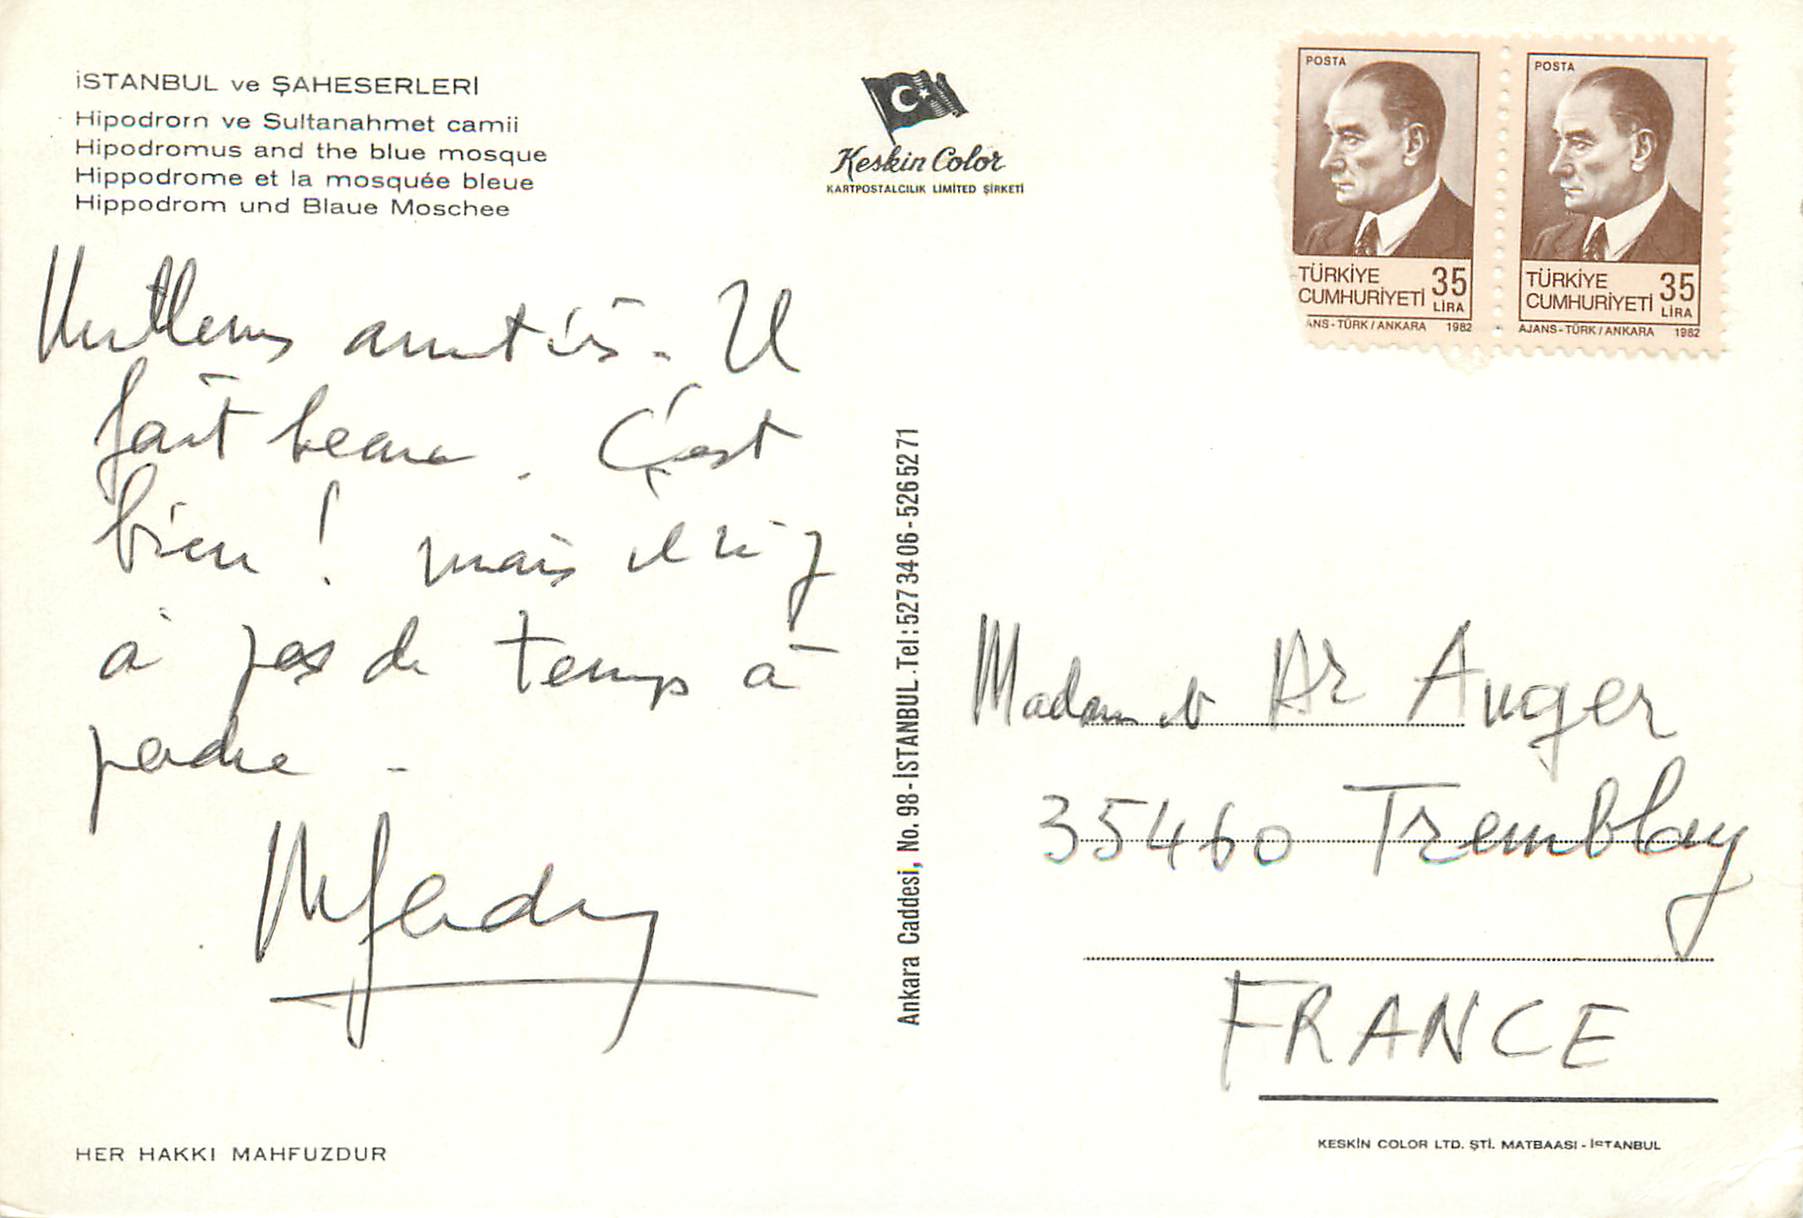 İSTANBUL ve ŞAHESERLERİ
Hipodrom ve Sultanahmet camii
Hipodromus and the blue mosque
Hippodrome et la mosquée bleue
Hippodrom und Blaue Moschee
Keskin Color
KARTPOSTALCILIK LİMİTED ŞİRKETİ
POSTA
TÜRKİYE
CUMHURİYETİ 35
LİRA
ANS - TÜRK / ANKARA 1982
POSTA
TÜRKİYE
CUMHURİYETİ 35
LİRA
AJANS - TÜRK / ANKARA 1982
Meilleures amitiés. Il
fait beau. C'est
bien ! mais il n'y
a pas de temps à
perdre.
Ankara Caddesi, No. 98 - İSTANBUL . Tel: 527 34 06 - 526 52 71
Madame et Dr Auger
35460 Tremblay
FRANCE
HER HAKKI MAHFUZDUR
KESKİN COLOR LTD. ŞTİ. MATBAASI - İSTANBUL